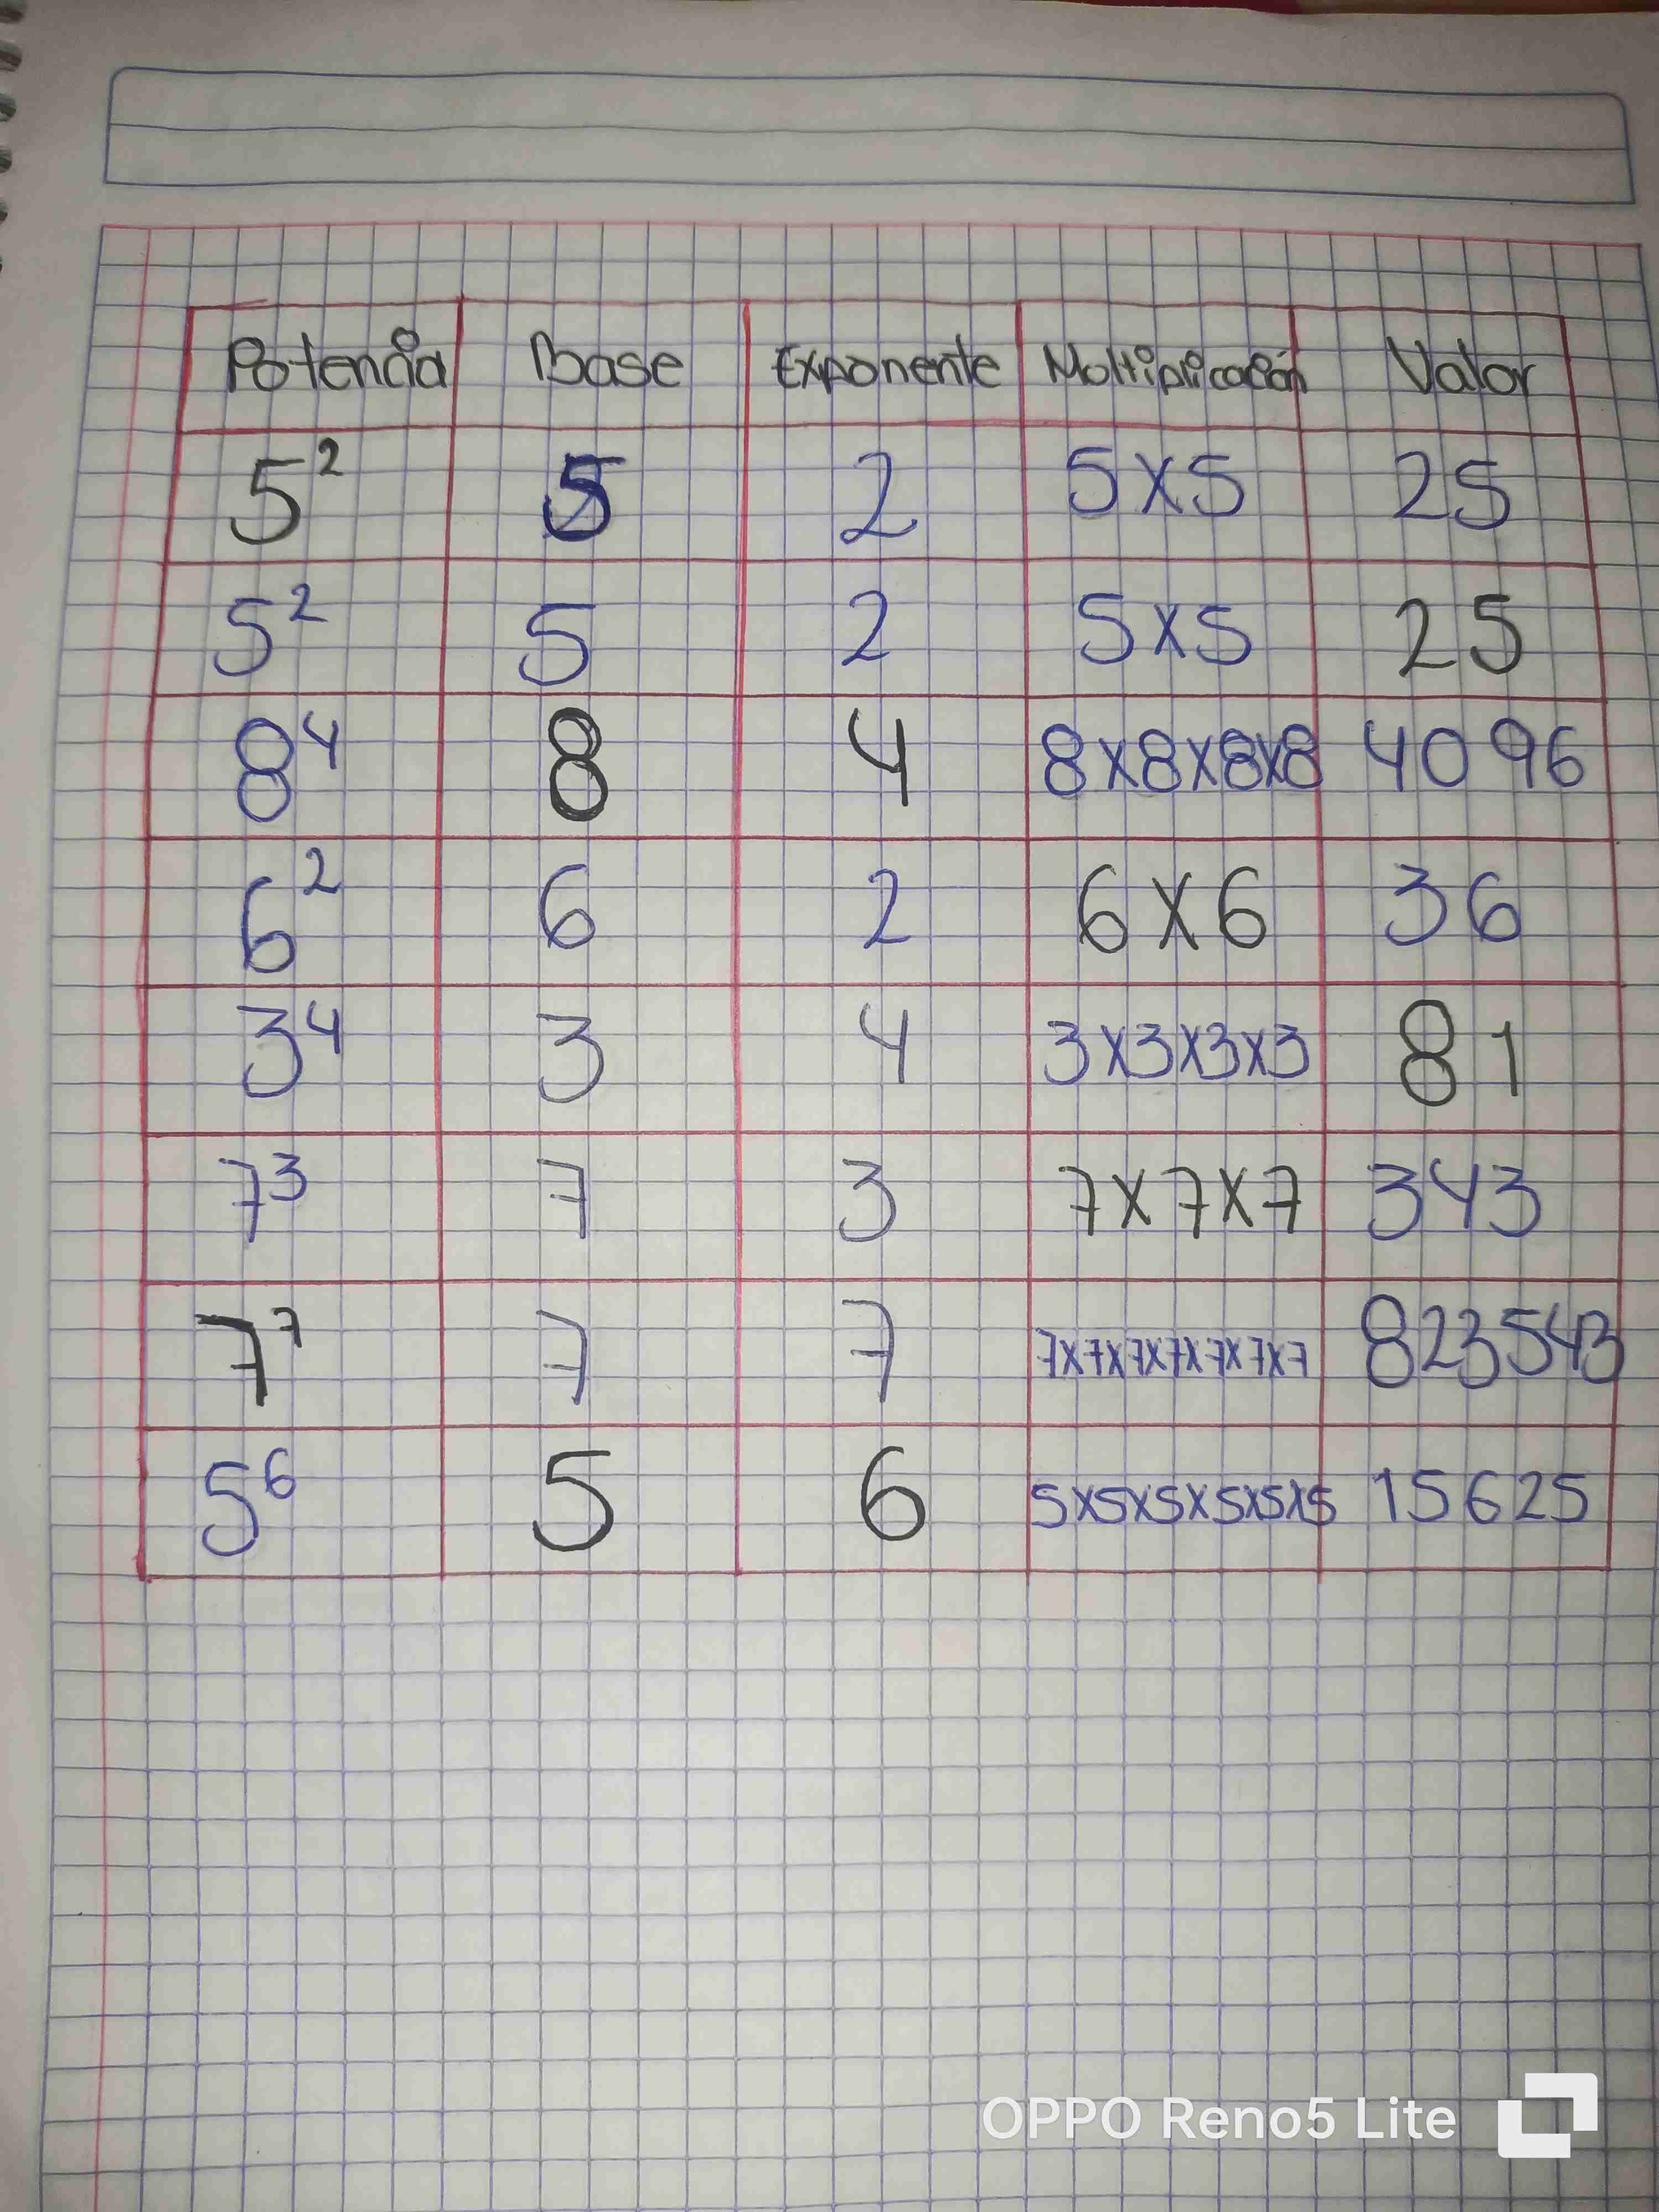 Potencia Base Exponente Moltiplicación Valor
5² 5 2 5x5 25
5² 5 2 5x5 25
8⁴ 8 4 8x8x8x8 4096
6² 6 2 6x6 36
3⁴ 3 4 3x3x3x3 81
7³ 7 3 7x7x7 343
7⁷ 7 7 7x7x7x7x7x7x7 823543
5⁶ 5 6 5x5x5x5x5x5 15625
OPPO Reno5 Lite